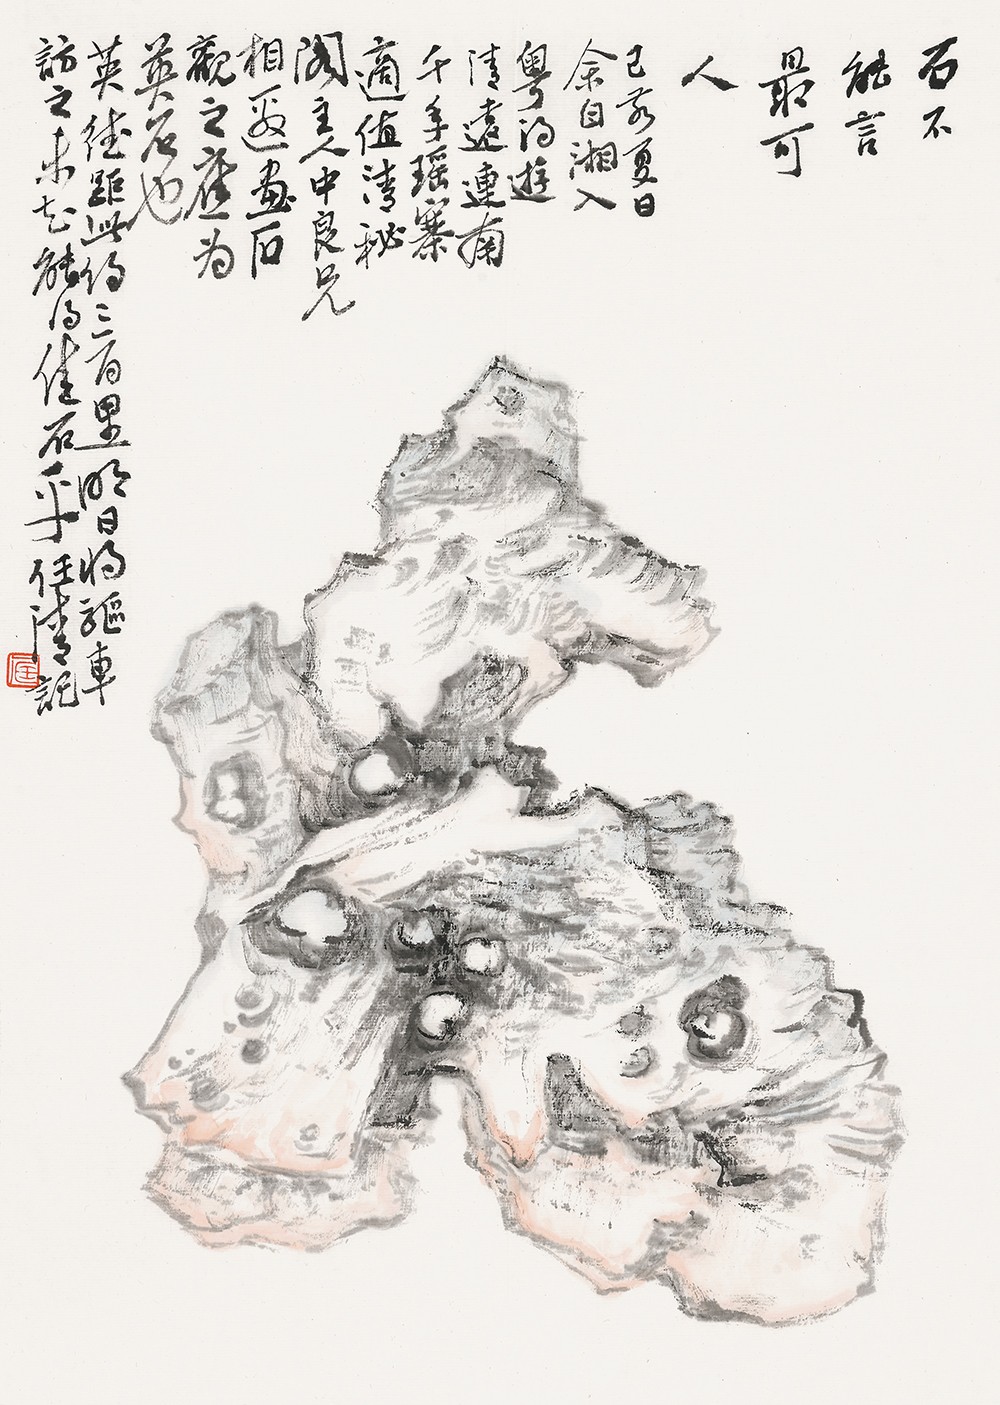 石不
能言
最可
人
己亥夏日
余自湘入
粵得遊
清遠連南
千年瑤寨
適值清秘
閣主人中良兄
相邀畫石
觀之應為
英石也
英德距此約三百里明日將驅車
訪之未知能得佳石乎任清記